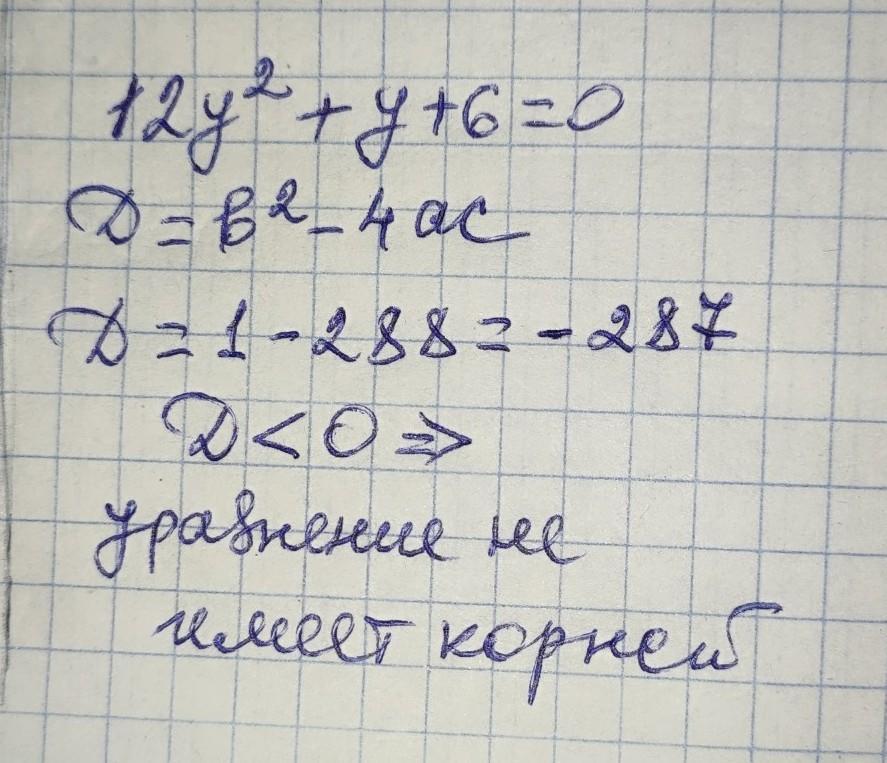 12y² + y + 6 = 0
D = b² - 4ac
D = 1 - 288 = - 287
D < 0 ⇒
уравнение не
имеет корней